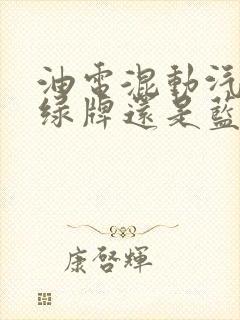 油電混動汽
綠牌還是藍
康啓輝